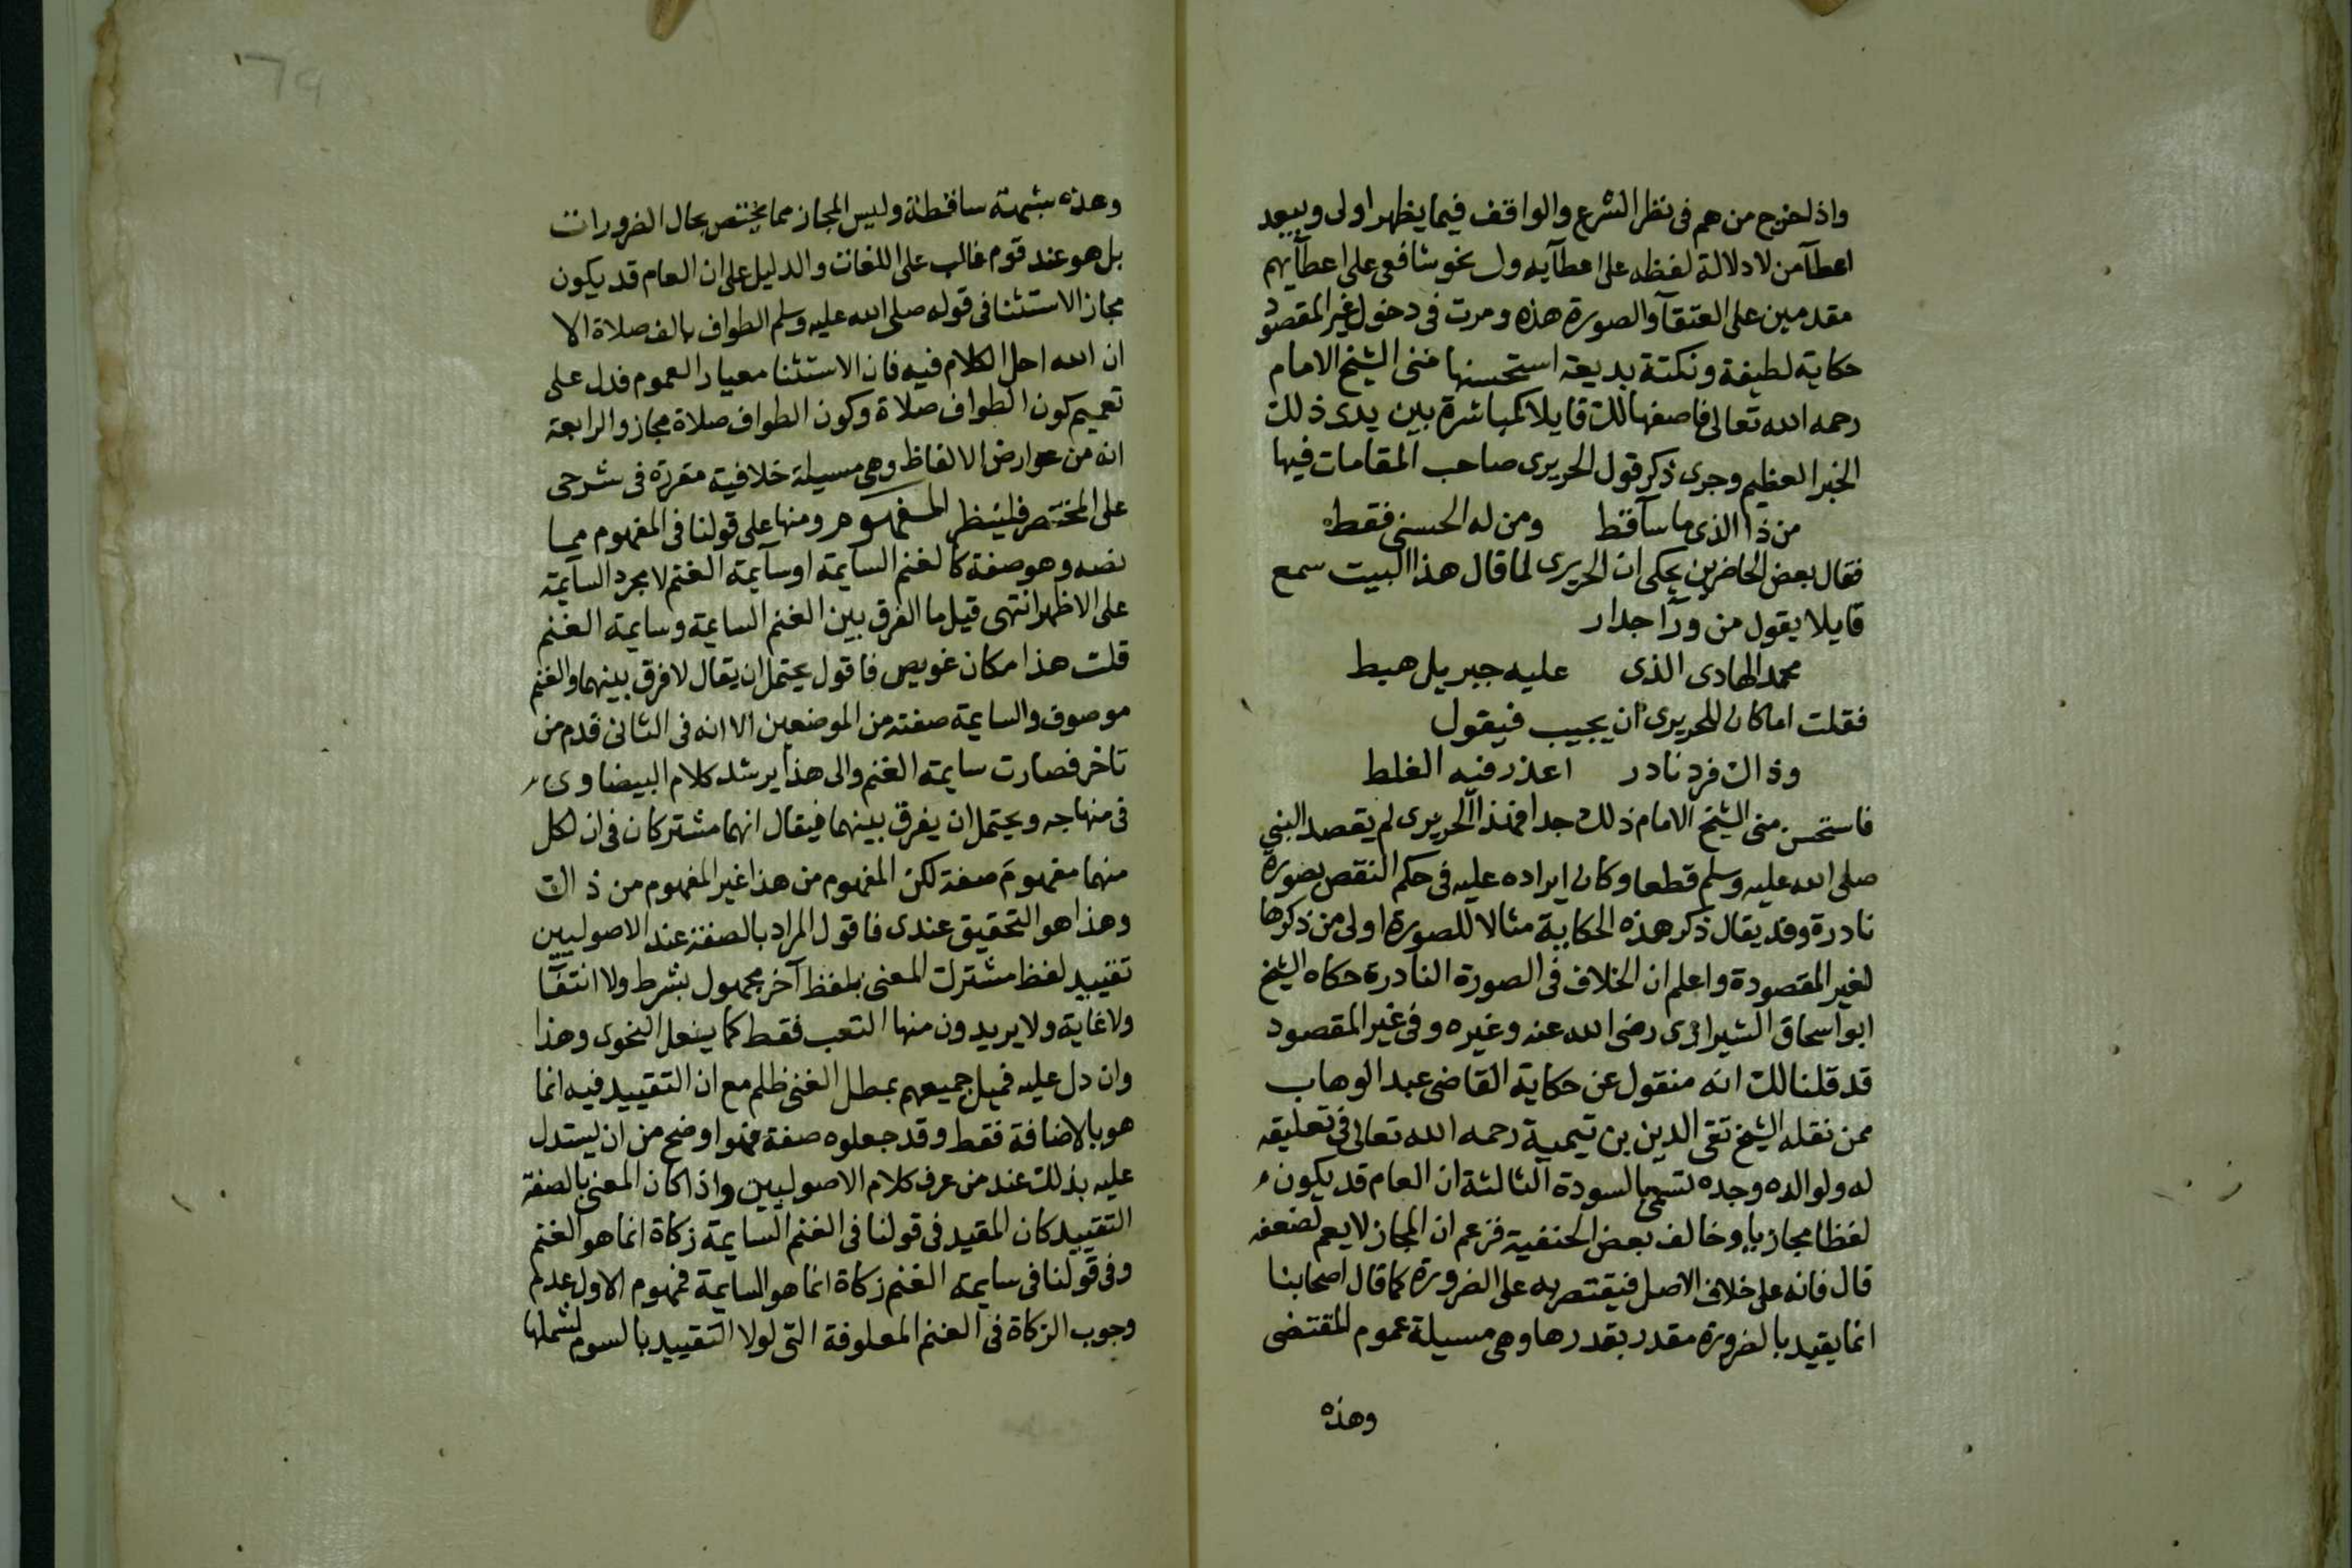 واذ لخرج من هم فى نظر الشرع والواقف فيما يظهر اولى ويبعد
اعطآ من لا دلالة لفظه على اعطآيه ول نحو شافعى على اعطآيهم
مقدمين على العتقآ والصورة هذه ومرت فى دخول غير المقصود
حكاية لطيفة ونكتة بديعة استحسنها منى الشيخ الامام
رحمه الله تعالى فاصفها لك قايلا كمباشرة بين يدى ذلك
الخبر العظيم وجرى ذكر قول الحريرى صاحب المقامات فيها
من ذا الذى ما سآ قط ومن له الحسنى فقط
فقال بعض الحاضرين يحكى ان الحريرى لما قال هذا البيت سمع
قايلا يقول من ورآ جدار
محمد الهادى الذى عليه جبريل هبط
فقلت اما كان للحريرى ان يجيب فيقول
وذاك فرد نادر اعذر فيه الغلط
فاستحسن منى الشيخ الامام ذلك جدا فهذا الحريرى لم يقصد النبي
صلى الله عليه وسلم قطعا وكان ايراده عليه فى حكم النقص بصورة
نادرة وقد يقال ذكر هذه الحكاية مثالا للصورة اولى من ذكرها
لغير المقصودة واعلم ان الخلاف فى الصورة النادرة حكاه الشيخ
ابو اسحاق الشيرازى رضى الله عنه وغيره وفى غير المقصود
قد قلنا لك انه منقول عن حكاية القاضى عبد الوهاب
ممن نقله الشيخ تقى الدين بن تيمية رحمه الله تعالى فى تعليقه
له ولوالده وجده لتسميها لسودة الثالثة ان العام قد يكون
لفظا مجازيا وخالف بعض الحنفية فزعم ان المجاز لا يعم لضعفه
قال فانه على خلاف الاصل فيقتصر به على الضرورة كما قال اصحابنا
انما يقيد بالضرورة مقدر بقدرها وهى مسيلة عموم المقتضى
وهذه
وهذه شبهة ساقطة وليس المجاز مما يختص بحال الضرورات
بل هو عند قوم غالب على اللغات والدليل على ان العام قد يكون
مجاز الاستثنا فى قوله صلى الله عليه وسلم الطواف بالف صلاة الا
ان الله احل الكلام فيه فان الاستثنا معيار العموم فدل على
تعميم كون الطواف صلاة وكون الطواف صلاة مجاز والرابعة
انه من عوارض الالفاظ وهى مسيلة خلافية مقررة فى شرحى
على المختصر فلينظر المفهوم ومنها على قولنا فى المفهوم مما
نصه وهو صفة كالغنم السآيمة او سآيمة الغنم لا مجرد السآيمة
على الاظهر انتهى قيل ما الفرق بين الغنم السايمة وسايمة الغنم
قلت هذا مكان غويص فاقول يحتمل ان يقال لا فرق بينهما والغنم
موصوف والسايمة صفته من الموضعين الا انه فى الثانى قدم من
تاخر فصارت سايمة الغنم والى هذا يرشد كلام البيضاوى
فى منهاجه ويحتمل ان يفرق بينهما فيقال انهما مشتركان فى ان لكل
منهما مفهومَ صفة لكن المفهوم من هذا غير المفهوم من ذاك
وهذا هو التحقيق عندى فاقول المراد بالصفة عند الاصوليين
تقييد لفظ مشترك المعنى بلفظ آخر مجهول بشرط ولا انتقآ
ولا غاية ولا يريدون منها التعب فقط كما يفعل النحوى وهذا
وان دل عليه فميل جميعهم بمطل الغنى ظلم مع ان التقييد فيه انما
هو بالاضافة فقط وقد جعلوه صفة فهو اوضح من ان يستدل
عليه بذلك عند من عرف كلام الاصوليين واذا كان المعنى بالصفة
التقييد كان المقيد فى قولنا فى الغنم السايمة زكاة انما هو الغنم
وفى قولنا فى سايمة الغنم زكاة انما هو السايمة فمفهوم الاول عدم
وجوب الزكاة فى الغنم المعلوفة التى لولا التقييد بالسوم لشملها